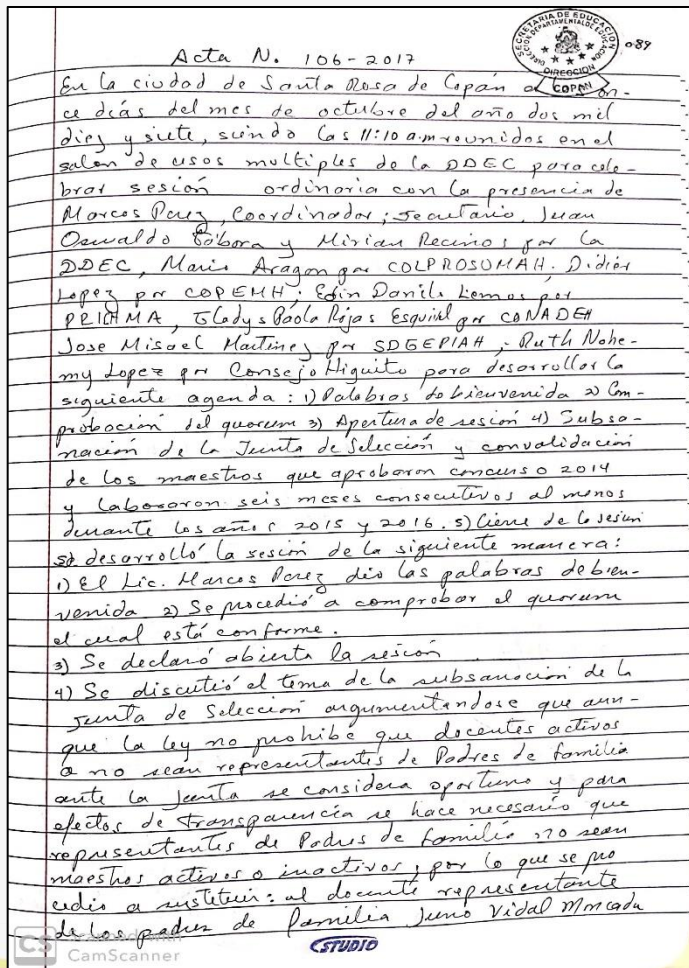 SECRETARIA DE EDUCACION
DIRECCION DEPARTAMENTAL DE EDUCACION
DIRECCION
COPAN
089
Acta N. 106-2017
En la ciudad de Santa Rosa de Copán a on-
ce días del mes de octubre del año dos mil
diez y siete, siendo las 11:10 am reunidos en el
salon de usos multiples de la DDEC para cele-
brar sesión ordinaria con la presencia de
Marcos Perez, Coordinador; secretario, Juan
Oswaldo Tábora y Mirian Recinos por la
DDEC, Mario Aragon por COLPROSUMAH. Didier
Lopez por COPEMH; Edin Danilo Lemos por
PRICHMA, Gladys Paola Rojas Esquivel por CONADEH
Jose Misael Martinez por SDGEPIAH; Ruth Nohe-
my Lopez por Consejo Higuito para desarrollar la
siguiente agenda: 1) Palabras de bienvenida 2) Com-
probación del quorum 3) Apertura de sesión 4) Subsa-
nación de la Junta de Selección y convalidación
de los maestros que aprobaron concurso 2014
y laboraron seis meses consecutivos al menos
durante los años 2015 y 2016. 5) Cierre de la sesion
se desarrolló la sesión de la siguiente manera:
1) El Lic. Marcos Perez dio las palabras de bien-
venida 2) Se procedió a comprobar el quorum
el cual está conforme.
3) Se declaró abierta la sesión
4) Se discutió el tema de la subsanación de la
Junta de Selección argumentandose que aun-
que la ley no prohibe que docentes activos
o no sean representantes de Padres de familia
ante la Junta se considera oportuno y para
efectos de transparencia se hace necesario que
representantes de Padres de familia no sean
maestros activos o inactivos, por lo que se pro
cedio a sustituir: al docente representante
de los padres de familia Juno Vidal Moncada
CS CamScanner
STUDIO